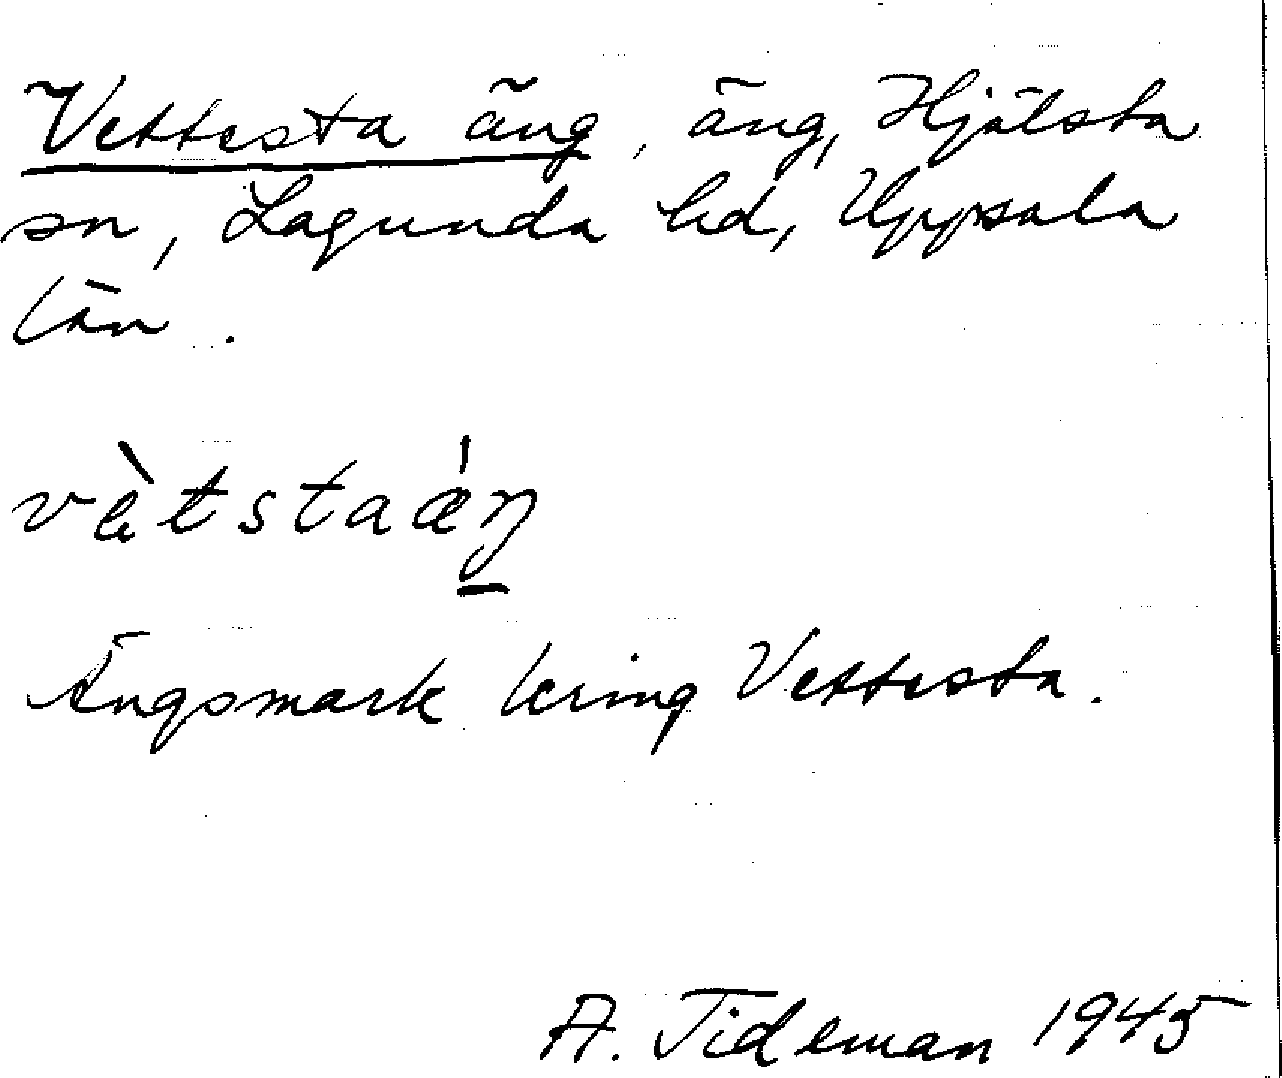 Vettesta äng, äng, Hjälsta
sn, Lagunda hd, Uppsala
län.
vètstaǽŋ
Ängsmark kring Vettesta.
A. Tideman 1945